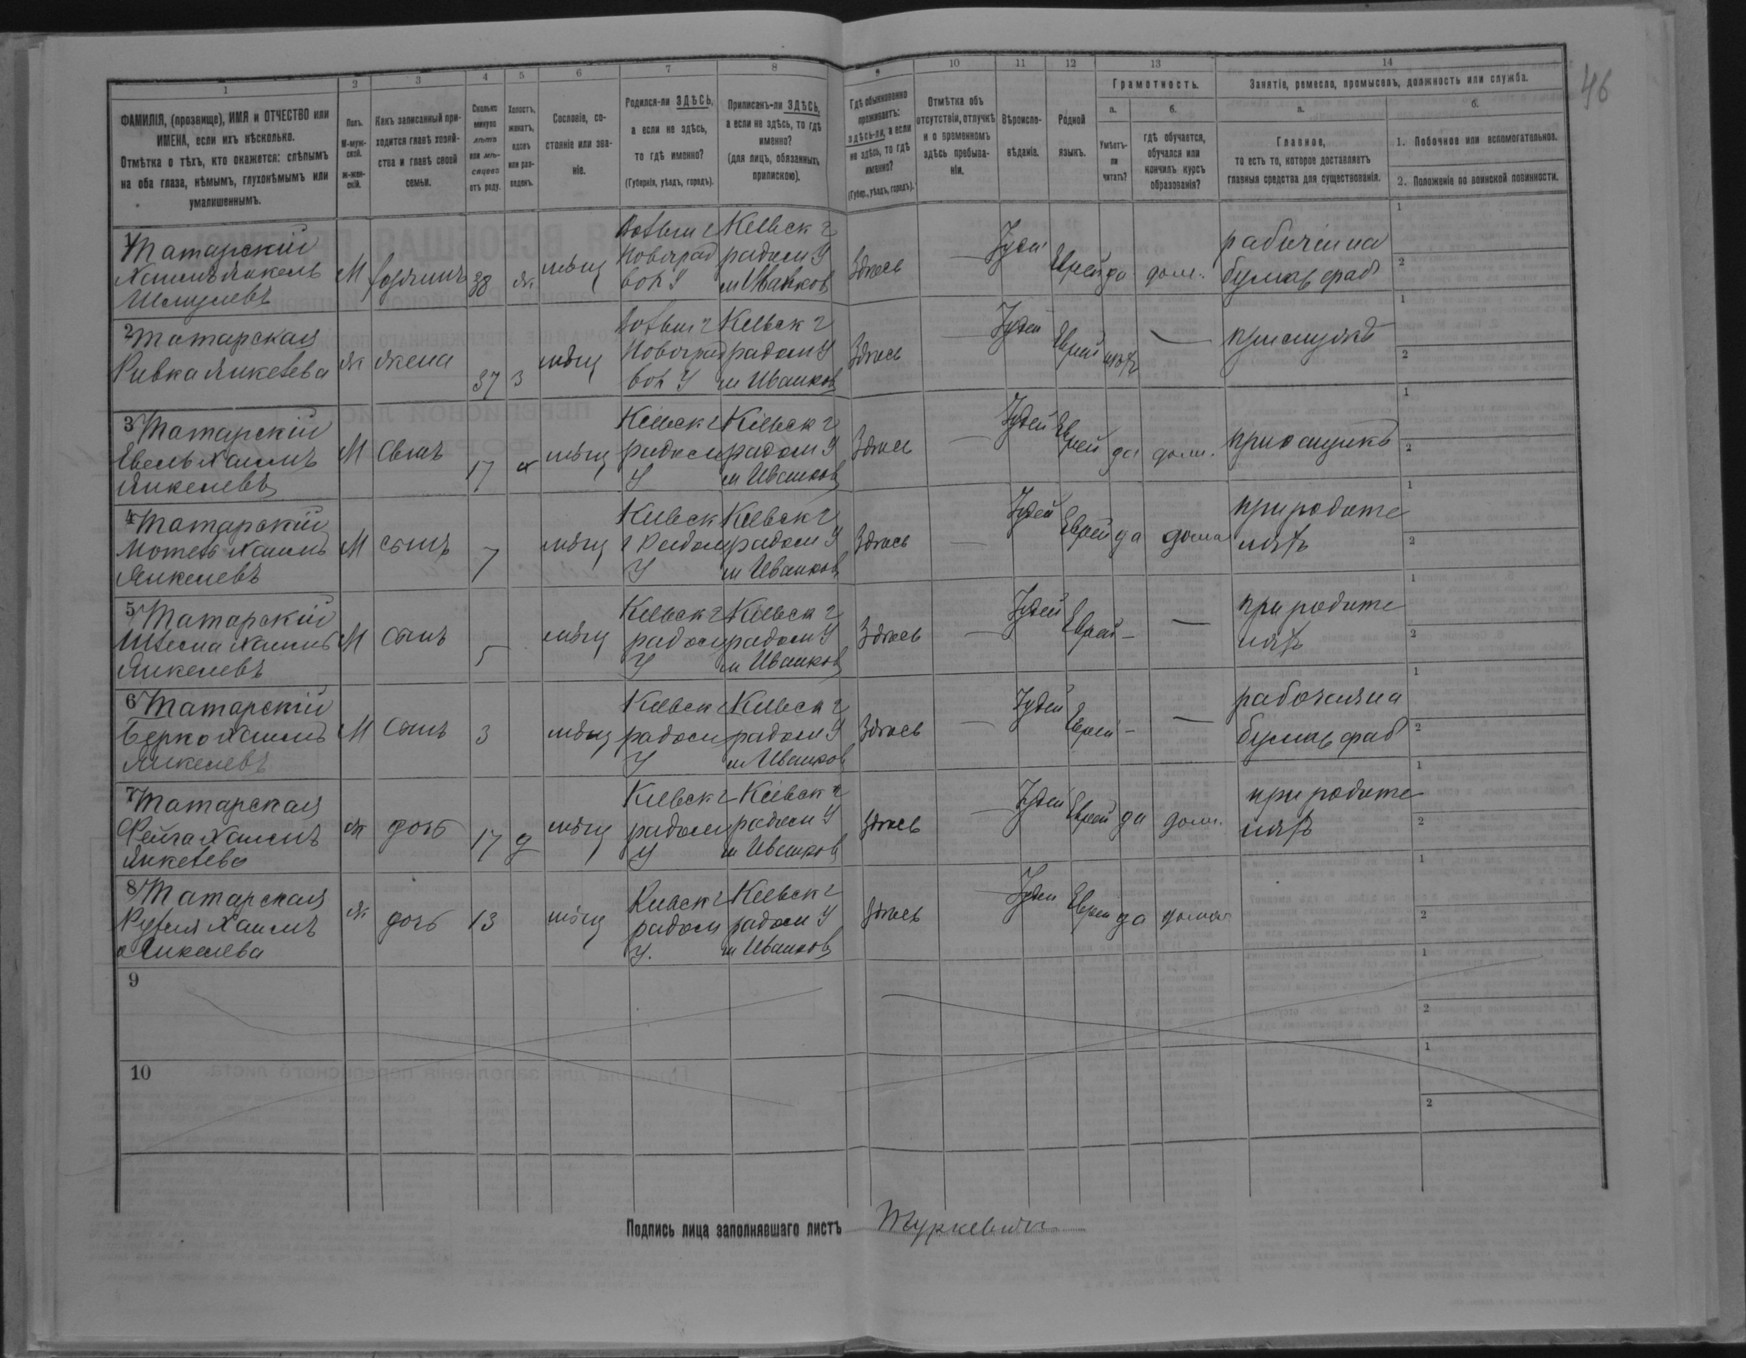 46
1 2 3 4 5 6 7 8 9 10 11 12 13 14
ФАМИЛІЯ, (прозвище), ИМЯ и ОТЧЕСТВО или
ИМЕНА, если ихъ нѣсколько.
Отмѣтка о тѣхъ, кто окажется: слѣпымъ
на оба глаза, нѣмымъ, глухонѣмымъ или
умалишеннымъ.
Полъ.
М-муж-
ской.
Ж-жен-
скій.
Какъ записанный при-
ходится главѣ хозяй-
ства и главѣ своей
семьи.
Сколько
минуло
лѣтъ
или мѣ-
сяцевъ
отъ роду.
Холостъ,
женатъ,
вдовъ
или раз-
веденъ.
Сословіе, со-
стояніе или зва-
ніе.
Родился-ли ЗДѢСЬ,
а если не здѣсь,
то гдѣ именно?
(Губернія, уѣздъ, городъ).
Приписанъ-ли ЗДѢСЬ,
а если не здѣсь, то гдѣ
именно?
(для лицъ, обязанныхъ
припискою).
Гдѣ обыкновенно
проживаетъ:
здѣсь-ли, а если
не здѣсь, то гдѣ
именно?
(Губер., уѣздъ, городъ).
Отмѣтка объ
отсутствіи, отлучкѣ
и о временномъ
здѣсь пребыва-
ніи.
Вѣроиспо-
вѣданіе.
Родной
языкъ.
Грамотность.
а. б.
Умѣетъ-
ли
читать?
гдѣ обучается,
обучался или
кончилъ курсъ
образованія?
Занятіе, ремесло, промыселъ, должность или служба.
а. б.
Главное,
то есть то, которое доставляетъ
главныя средства для существованія.
1. Побочное или вспомогательное.
2. Положеніе по воинской повинности.
1 Татарскій М 38 ж мѣщ Кіевск г Здѣсь — Іудей Еврей да дом. рабочій на 1
Хаимъ Янкель Новоград радом У бумаж фаб 2
Шмулевъ вол У м Иванков
2 Татарская ж жена 37 з мѣщ Кіевск г Здѣсь — Іудей Еврей нѣт — 1
Ривка Янкелева Новоград радом У 2
вол У м Иванков
3 Татарскій М сынъ 17 х мѣщ Кіевск г Кіевск г Здѣсь — Іудей Еврей да дом. 1
Хаимъ радом радом У 2
Янкелевъ У м Иванков
4 Татарскій М сынъ 7 мѣщ Кіевск Кіевск г Здѣсь — Іудей Еврей да дома при родите 1
Мотель Хаимъ г Радом радом У ляхъ 2
Янкелевъ У м Иванков
5 Татарскій М сынъ 5 мѣщ Кіевск г Кіевск г Здѣсь — Іудей Еврей — — при родите 1
Хаимъ радом радом У ляхъ 2
Янкелевъ У м Иванков
6 Татарскій М сынъ 3 мѣщ Кіевск г Кіевск г Здѣсь — Іудей Еврей — — на 1
Берко Хаимъ радом радом У бумаж фаб 2
Янкелевъ У м Иванков
7 Татарская ж дочь 17 д мѣщ Кіевск г Кіевск г Здѣсь — Іудей Еврей да дом. при родите 1
Фейга Хаимъ радом радом У ляхъ 2
Янкелева У м Иванков
8 Татарская ж дочь 13 мѣщ Кіевск г Кіевск г Здѣсь — Іудей Еврей да дома 1
Хаимъ радом радом У 2
Янкелева У. м Иванков
9 1
2
10 1
2
Подпись лица заполнявшаго листъ Туркевичъ